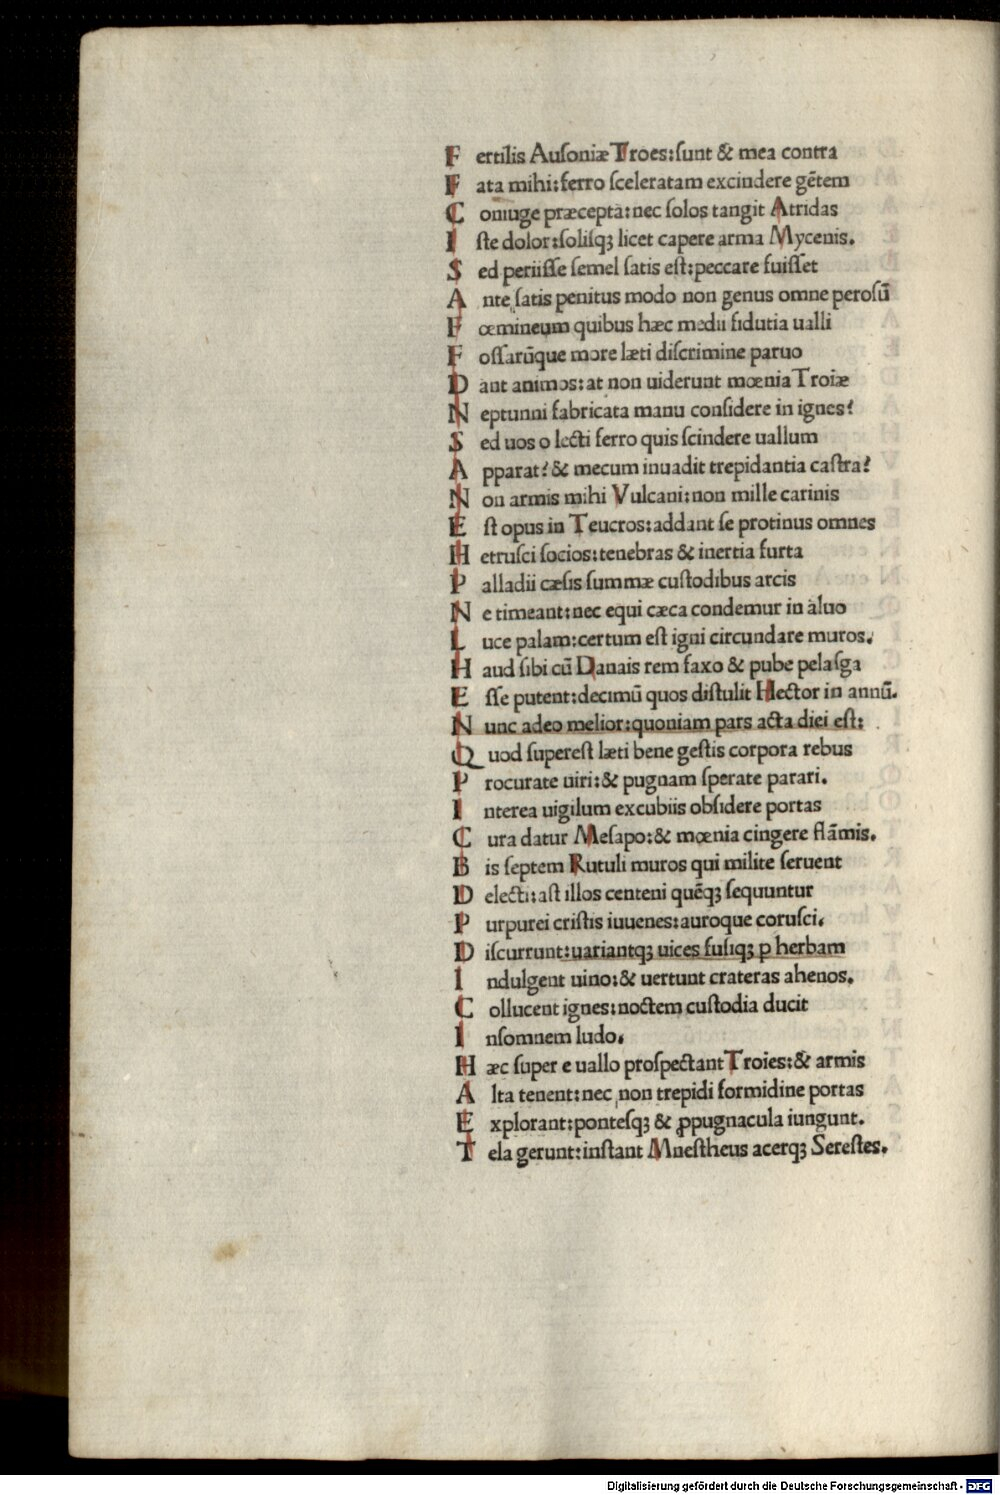 F ertilis Auſoniæ Troes: ſunt & mea contra
F ata mihi: ferro ſceleratam excindere gētem
C oniuge præcepta: nec ſolos tangit Atridas
I ſte dolor: ſoliſqꝫ licet capere arma Mycenis.
S ed periiſſe ſemel ſatis eſt: peccare fuiſſet
A nte ſatis penitus modo non genus omne peroſū
F œmineum quibus hæc medii fidutia ualli
F oſſarūque more læti diſcrimine paruo
D ant animos: at non uiderunt mœnia Troiæ
N eptunni fabricata manu conſidere in ignes?
S ed uos o lecti ferro quis ſcindere uallum
A pparat? & mecum inuadit trepidantia caſtra?
N on armis mihi Vulcani: non mille carinis
E ſt opus in Teucros: addant ſe protinus omnes
H etruſci ſocios: tenebras & inertia furta
P alladii cæſis ſummæ cuſtodibus arcis
N e timeant: nec equi cæca condemur in aluo
L uce palam: certum eſt igni circundare muros.
H aud ſibi cū Danais rem faxo & pube pelaſga
E ſſe putent: decimū quos diſtulit Hector in annū.
N unc adeo melior: quoniam pars acta diei eſt:
Q uod ſupereſt læti bene geſtis corpora rebus
P rocurate uiri: & pugnam ſperate parari.
I nterea uigilum excubiis obſidere portas
C ura datur Meſapo: & mœnia cingere flāmis.
B is ſeptem Rutuli muros qui milite ſeruent
D electi: aſt illos centeni quēqꝫ ſequuntur
P urpurei criſtis iuuenes: auroque coruſci.
D iſcurrunt: uariantqꝫ uices fuſiqꝫ p herbam
I ndulgent uino: & uertunt crateras ahenos.
C ollucent ignes: noctem cuſtodia ducit
I nſomnem ludo.
H æc ſuper e uallo proſpectant Troies: & armis
A lta tenent: nec non trepidi formidine portas
E xplorant: ponteſqꝫ & ꝓpugnacula iungunt.
T ela gerunt: inſtant Mneſtheus acerqꝫ Sereſtes.
Digitalisierung gefördert durch die Deutsche Forschungsgemeinschaft - DFG